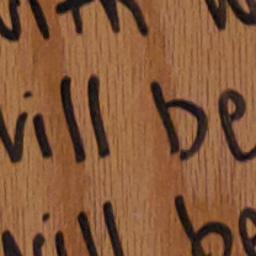 with
will be
will be